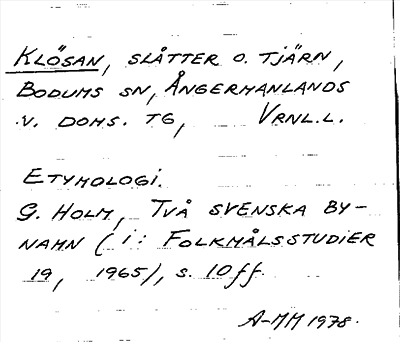 KLÖSAN, SLÅTTER O. TJÄRN,
BODUMS SN, ÅNGERMANLANDS
V. DOMS. TG, VRNL.L.
ETYMOLOGI.
G. HOLM, TVÅ SVENSKA BY-
NAMN (I: FOLKMÅLSSTUDIER
19, 1965), S. 10 ff.
A-MM 1978.